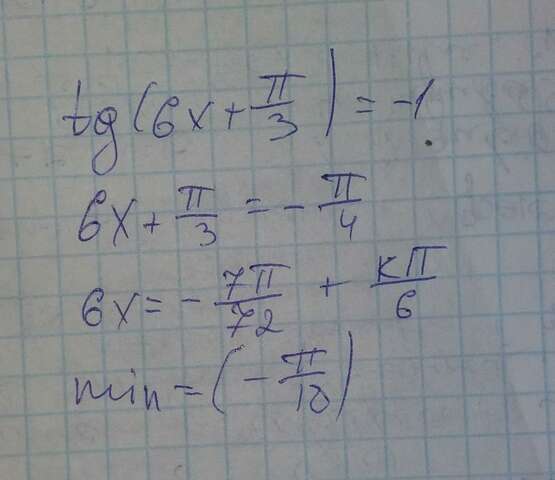 tg(6x + π/3) = -1
6x + π/3 = - π/4
6x = - 7π/72 + kπ/6
min = (- π/18)